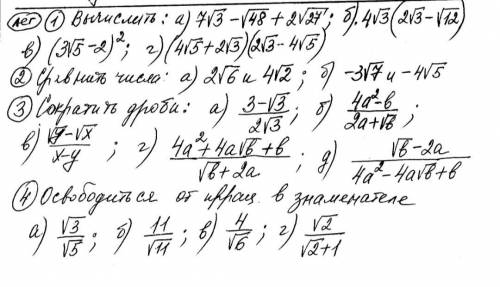 лёг ① Вычислить: а) 7√3 − √48 + 2√27; б). 4√3(2√3 − √12)
в) (3√5 − 2)²; г) (4√5 + 2√3)(2√3 − 4√5)
② Сравнить числа: а) 2√6 и 4√2; б) −3√7 и −4√5
③ Сократить дроби: а) (3 − √3)/(2√3); б) (4a² − b)/(2a + √b);
в) (√y − √x)/(x − y); г) (4a² + 4a√b + b)/(√b + 2a); д) (√b − 2a)/(4a² − 4a√b + b)
④ Освободиться от иррац. в знаменателе
а) √3/√5; б) 11/√11; в) 4/√6; г) √2/(√2 + 1)